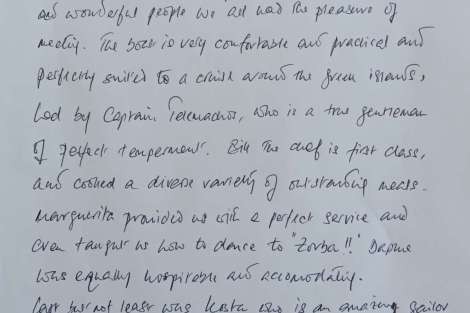 and wonderful people we all had the pleasure of
meeting. The boat is very comfortable and practical and
perfectly suited to a cruise around the greek islands,
Led by Captain Telemachos, who is a true gentleman
of perfect temperment. Bill the chef is first class,
and cooked a diverse variety of outstanding meals.
Marguerita provided us with a perfect service and
even taught us how to dance to "Zorba!!" Daphne
was equally hospitable and accomodating.
Last but not least was Kosta who is an amazing sailor